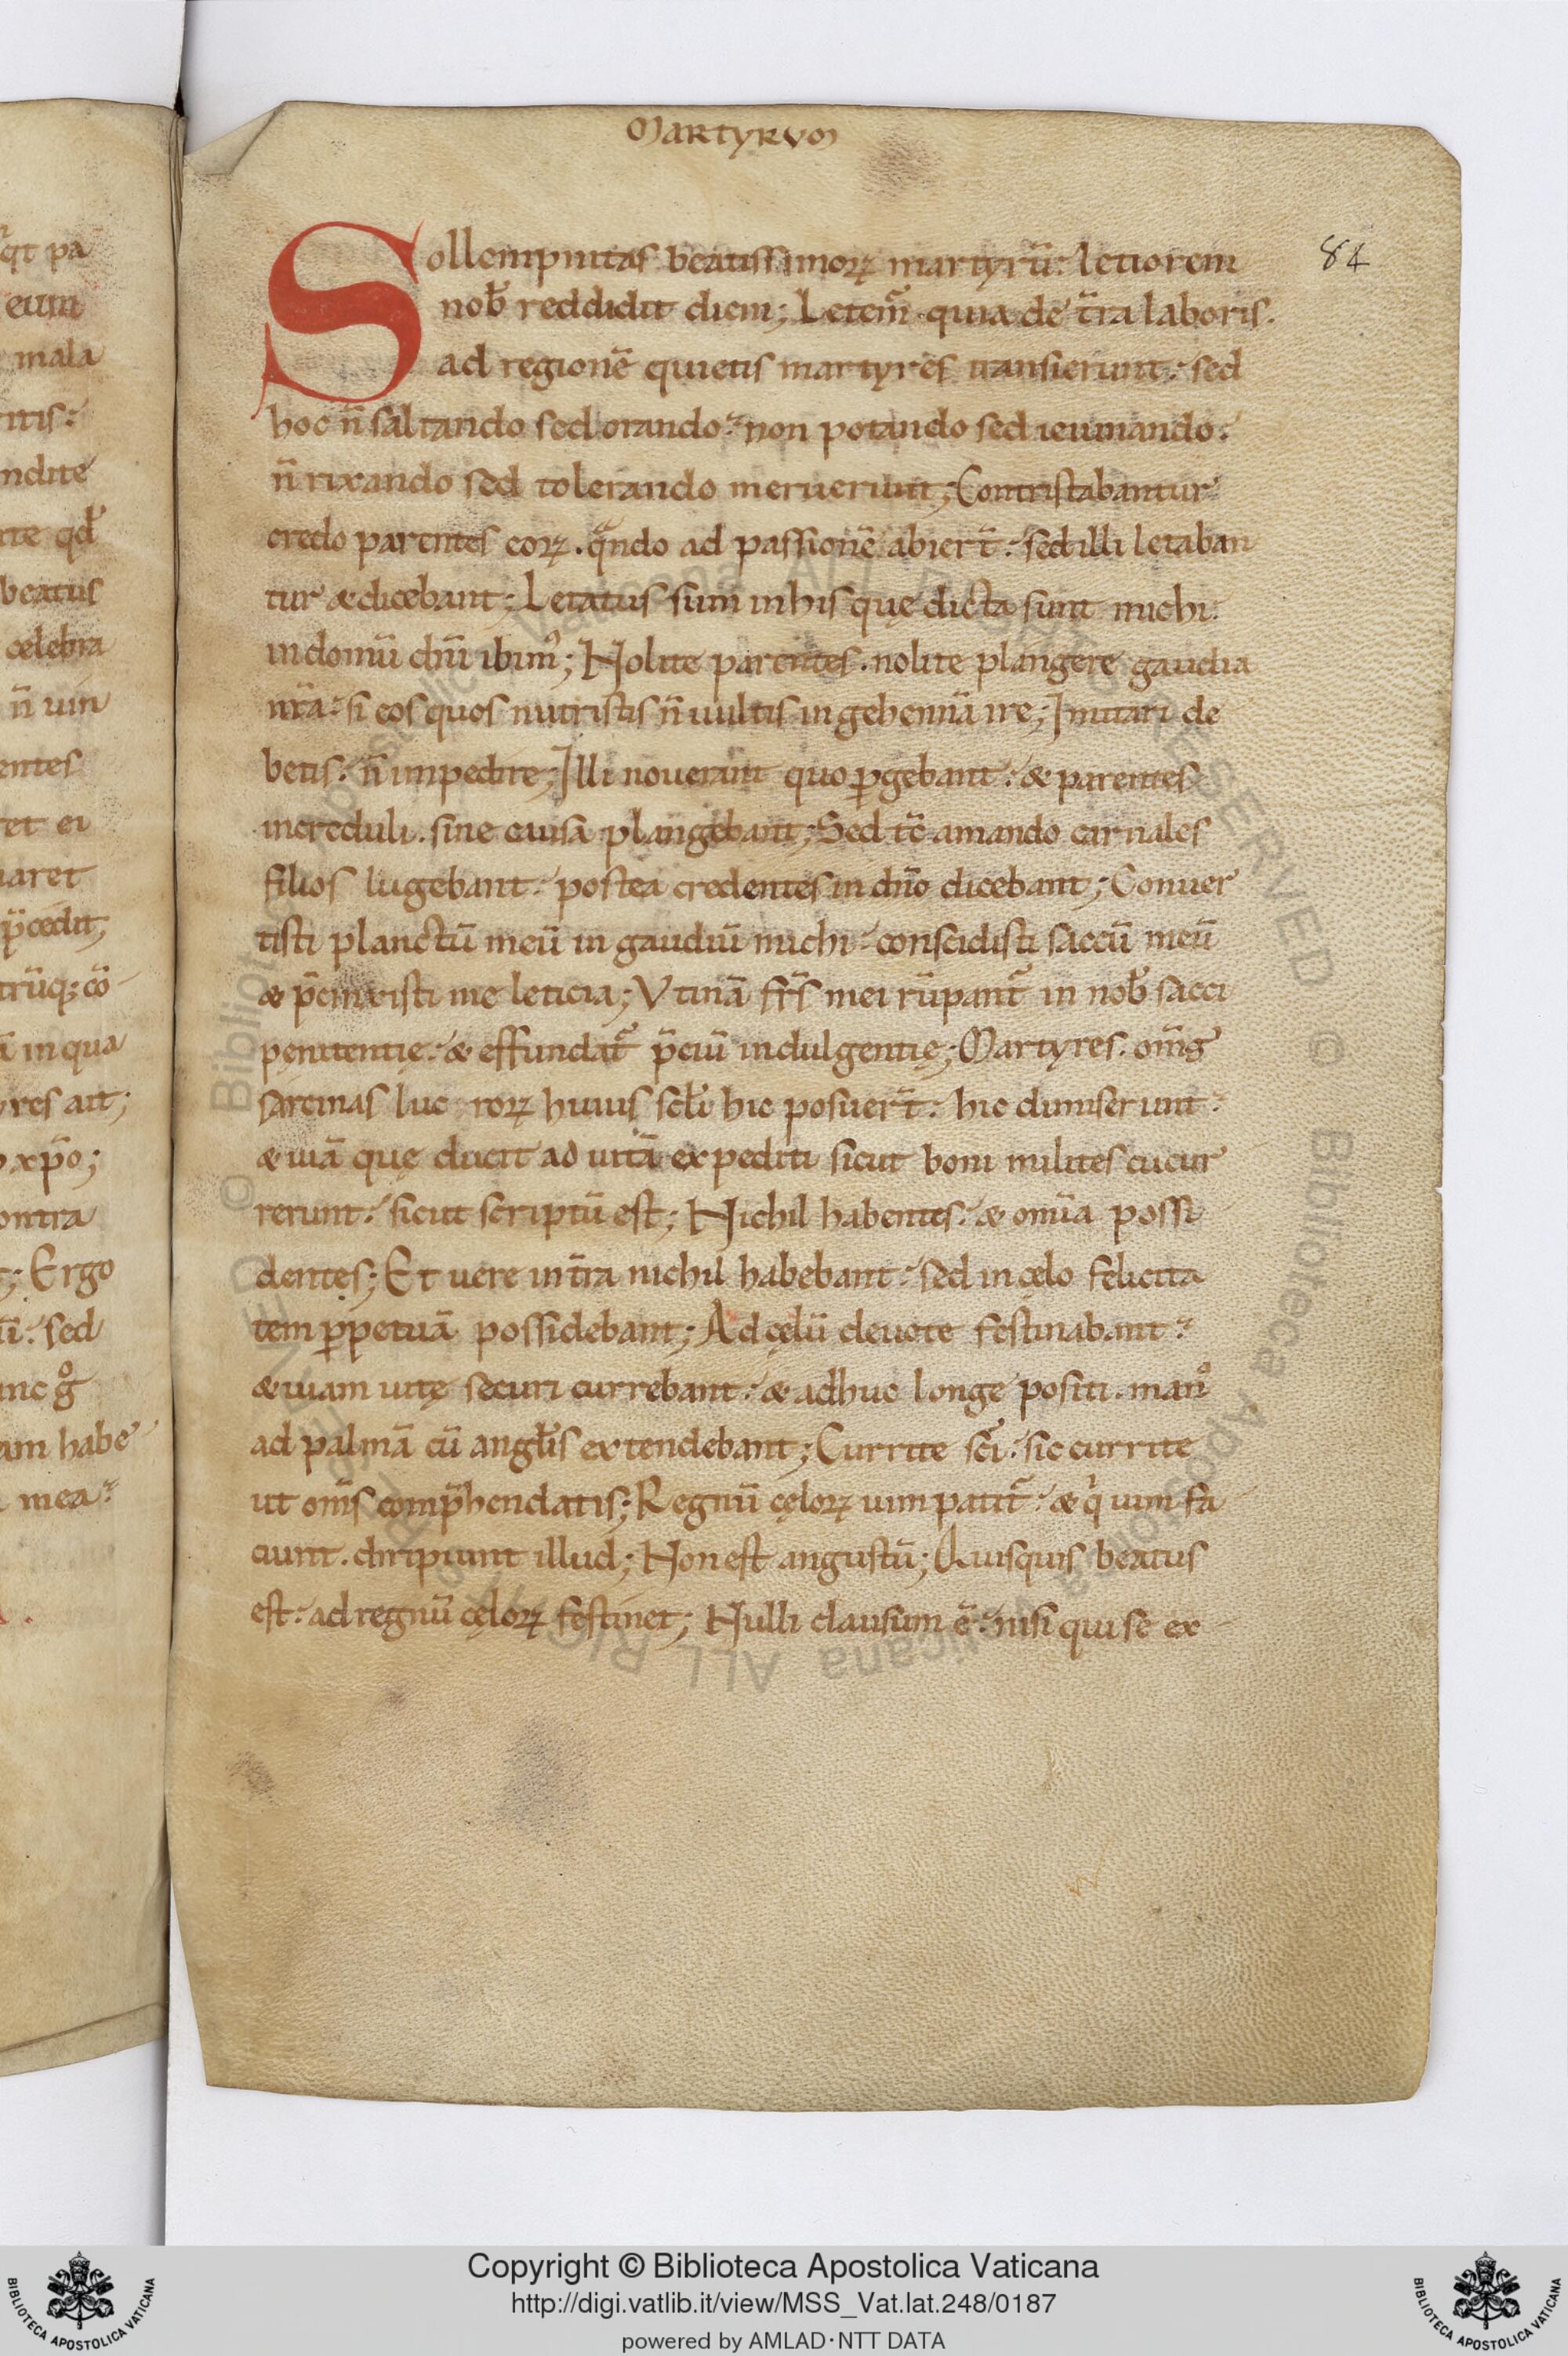 Martyrum
84
Sollempnitas beatissimoꝝ martyrū: letiorem
nob̄ reddidit diem; Letem̄ quia de t̄ra laboris.
ad regionē quietis martyres transierunt: sed
hoc n̄ saltando sed orando: non potando sed ieiunando:
n̄ rixando sed tolerando meruerunt; Contristabantur
credo parentes eoꝝ. qͣndo ad passionē abier̄t: sed illi letaban
tur & dicebant; Letatus sum in his quę dicta sunt michi:
in domū dn̄i ibimꝰ; Nolite parentes. nolite plangere gaudia
nr̄a: si eos quos nutristis n̄ uultis in gehennā ire; Imitari de
betis: n̄ impedire; Illi nouerant quo ꝑgebant: & parentes
increduli. sine causa plangebant; Sed tc̄ amando carnales
filios lugebant: postea credentes in dn̄o dicebant; Conuer
tisti planctū meū in gaudiū michi: conscidisti saccū meū
& p̄cinxisti me leticia; Vtinā fr̄s mei rūpant̄ in nob̄ sacci
penitentię: & effundat̄ p̄ciū indulgentię; Martyres. om̄s g̊
sarcinas luc roꝝ huius sc̄li hic posuer̄t: hic dimiserunt:
& uiā quę ducit ad uitā expediti sicut boni milites cucur
rerunt: sicut scriptū est; Nichil habentes: & omīa possi
dentes; Et uere in t̄ra nichil habebant: sed in cęlo felicita
tem ꝑpetuā possidebant; Ad cęlū deuote festinabant:
& uiam uitę securi currebant: & adhuc longe positi. manꝰ
ad palmā cū angl̄is extendebant; Currite sc̄i: sic currite
ut om̄s comp̄hendatis; Regnū cęloꝝ uim patit̄: & qͥ uim fa
ciunt. diripiunt illud; Non est angustū; Quisquis beatus
est: ad regnū cęloꝝ festinet; Nulli clausum ē: nisi qui se ex
Copyright © Biblioteca Apostolica Vaticana
http://digi.vatlib.it/view/MSS_Vat.lat.248/0187
powered by AMLAD·NTT DATA
BIBLIOTECA APOSTOLICA VATICANA
BIBLIOTECA APOSTOLICA VATICANA